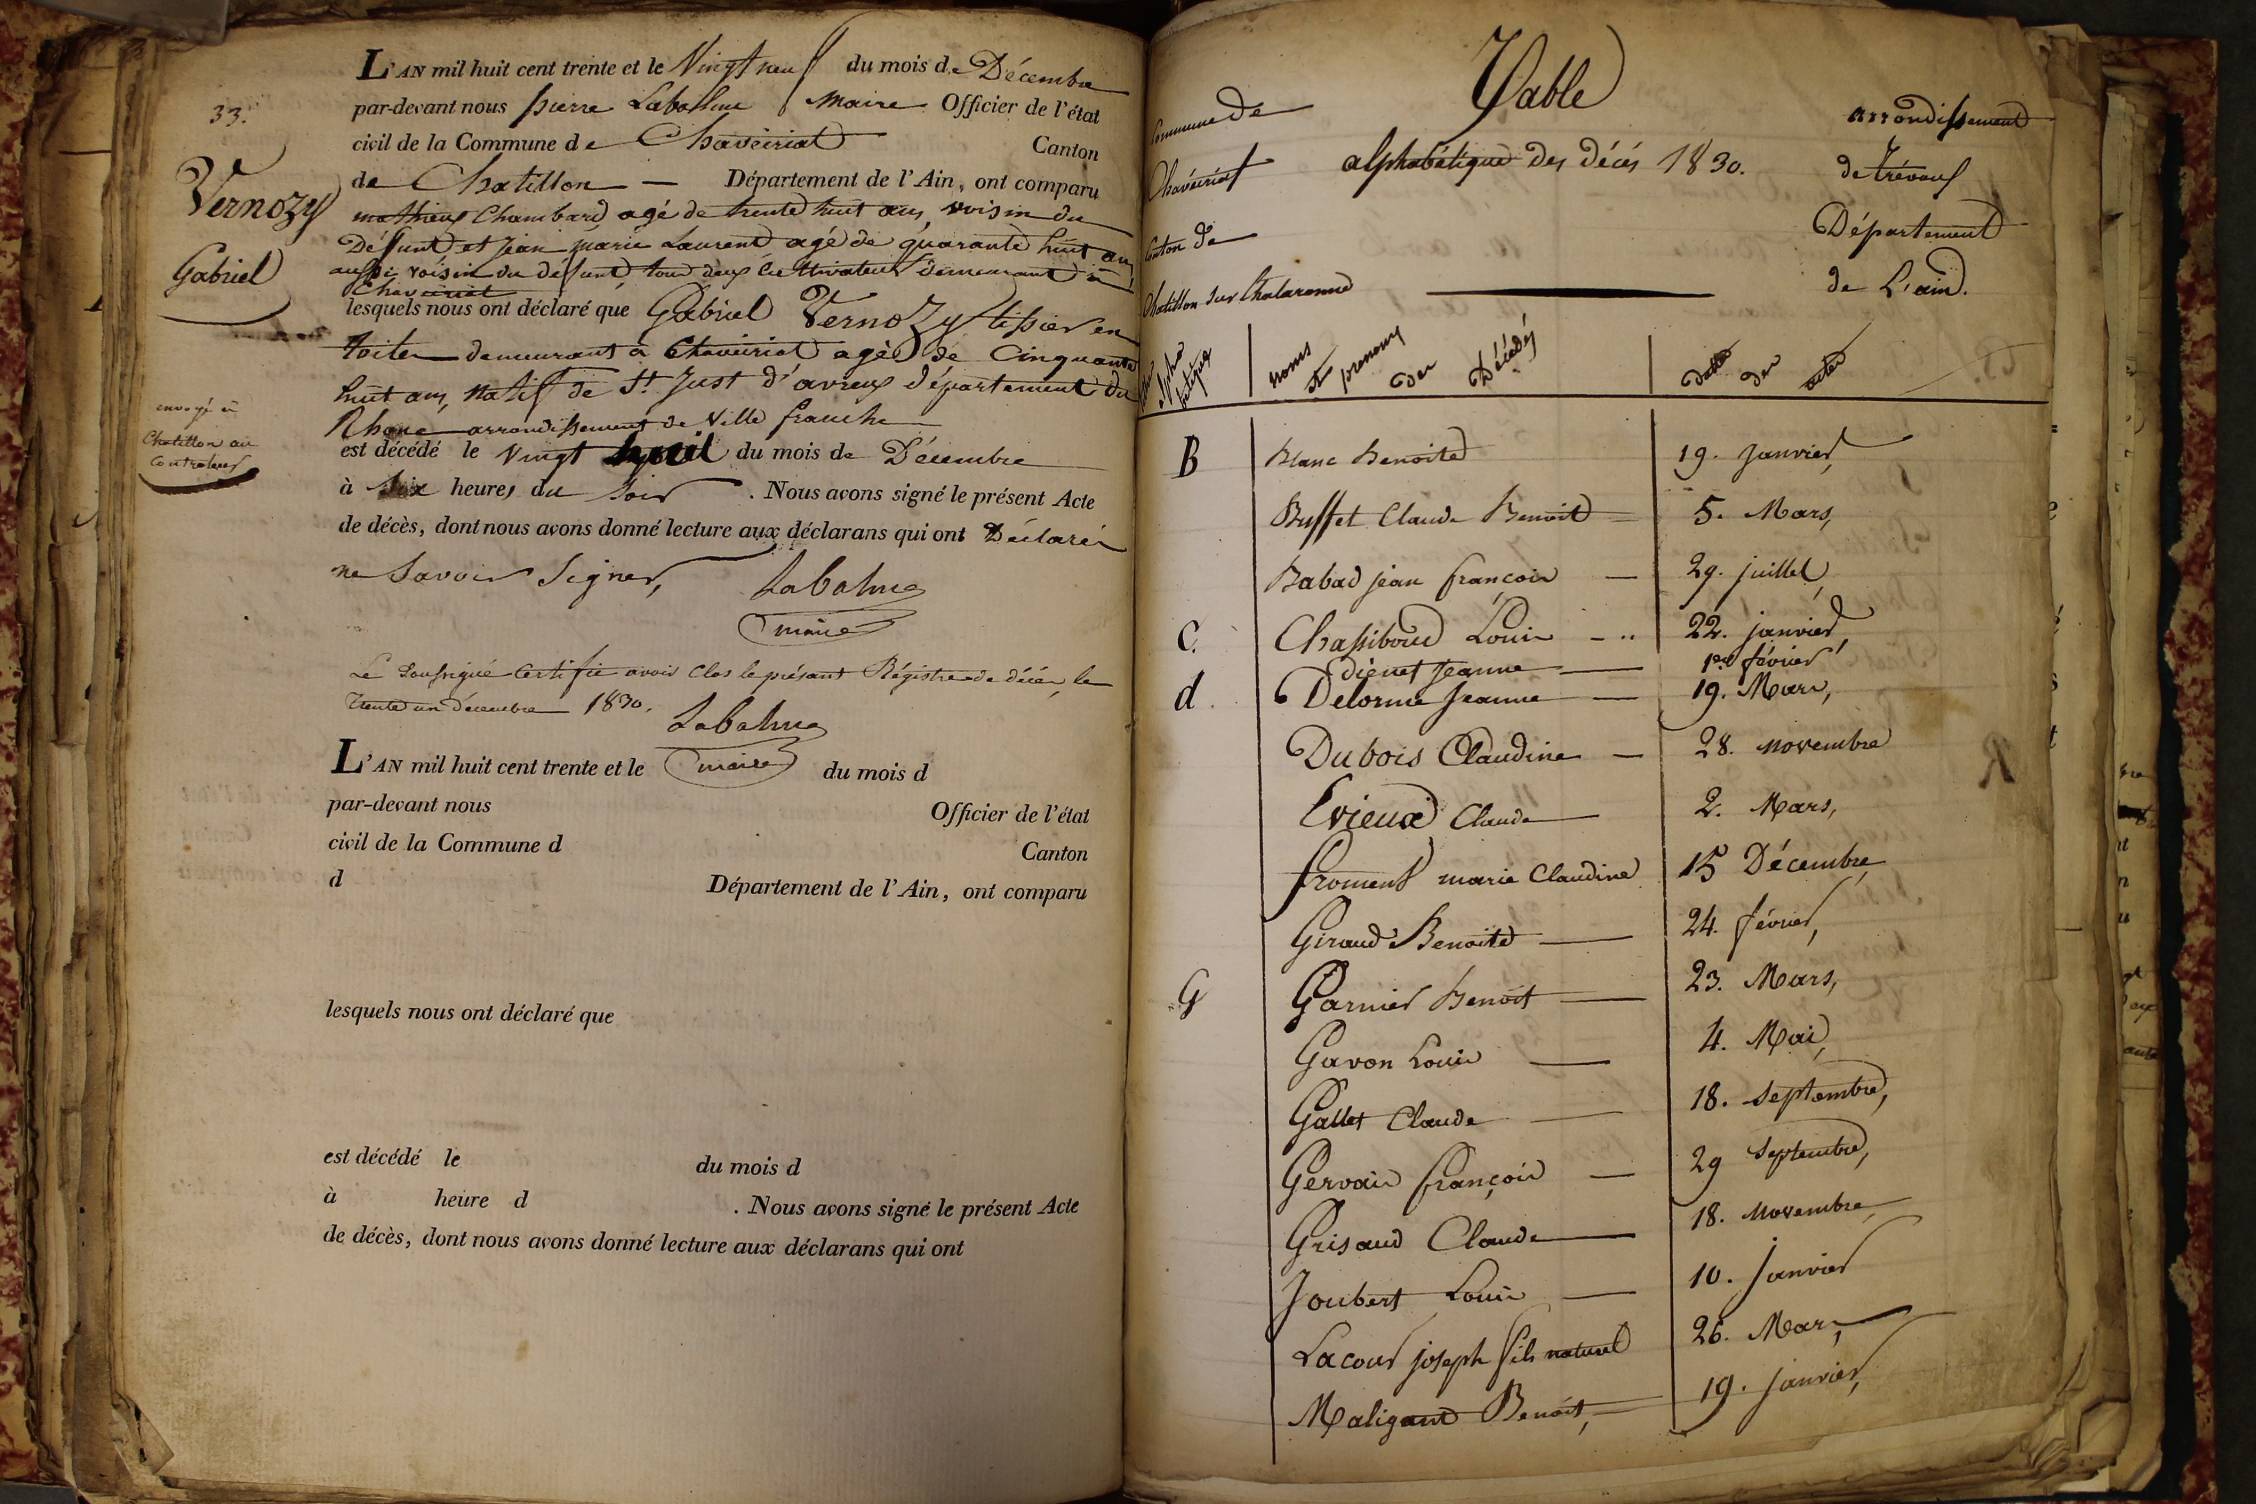 33.
Vernozy
Gabriel
L'AN mil huit cent trente et le Vingt neuf du mois de Décembre
par-devant nous pierre Labalme Maire Officier de l'état
civil de la Commune de Chaveiriat Canton
de Chatillon — Département de l'Ain, ont comparu
mathieu Chambard agé de trente huit ans, voisin du
Défunt et jean marie Laurent agé de quarante huit ans
aussi voisin du défunt tous deux Cultivateurs demeurant à
Chaveiriat
lesquels nous ont déclaré que Gabriel Vernozy tissier en
toiles demeurant à Chaveiriat agé de Cinquante
huit ans, natif de St. Just d'avreux département du
Rhone arrondissement de Ville franche
envoyé à
Chatillon au
Controleur
est décédé le vingt huit du mois de Décembre
à Six heures du Soir . Nous avons signé le présent Acte
de décès, dont nous avons donné lecture aux déclarans qui ont Déclarés
ne Savoir Signer, Labalme
maire
Le Soussigné Certifie avoir Clos le présent Régistre de décès, le
trente un décembre 1830. Labalme
maire
L'AN mil huit cent trente et le du mois d
par-devant nous Officier de l'état
civil de la Commune d Canton
d Département de l'Ain, ont comparu
lesquels nous ont déclaré que
est décédé le du mois d
à heure d . Nous avons signé le présent Acte
de décès, dont nous avons donné lecture aux déclarans qui ont
Commune de
Chavéiriat
Canton de
Chatillon sur Chalaronne
Table
alphabétique des décés 1830.
arrondissement
de trévoux
Département
de L'ain.
alphabétique noms et prenoms des Décédés dates des actes
B Blanc Benoite 19. Janvier,
Buffet Claude Benoit 5. Mars,
Babad jean françois — 29. juillet,
C. Chassiboud Louis 22. janvier,
diénet Jeanne — 1er février
d. Delorme Jeanne — 19. Mars,
Dubois Claudine — 28. novembre
Evieux Claude 2. Mars,
froment marie Claudine 15 Décembre
Giraud Benoite — 24. février,
G Garnier Benoit — 23. Mars,
Gavon Louis — 4. Mai,
Gallet Claude — 18. Septembre,
Gervais françois — 29 Septembre,
Grisaud Claude 18. Novembre
Joubert Louis — 10. Janvier
Lacour joseph fils naturel 26. Mars,
Maligand Benoit, 19. janvier,